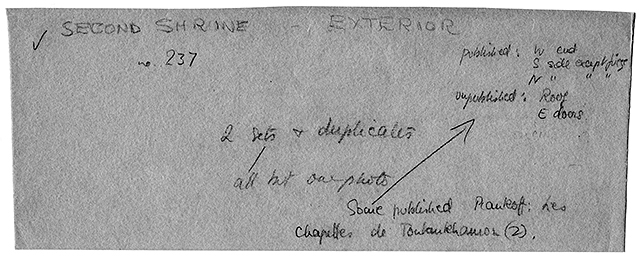 ✓ SECOND SHRINE - EXTERIOR
no. 237
published: W end
S side except frieze
N " " "
unpublished: Roof
E doors.
2 sets + duplicates
all but one photo
Some published Piankoff: Les
Chapelles de Toutankhamon (2).